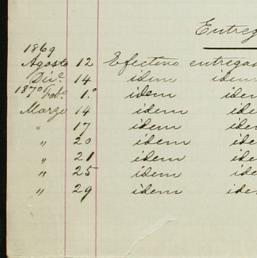 Entreg
1869
Agosto 12 Efectivo entregad
Dic.e 14 idem idem
1870 Feb. 1.º idem idem
Marzo 14 idem idem
" 17 idem idem
" 20 idem idem
" 21 idem idem
" 25 idem idem
" 29 idem idem